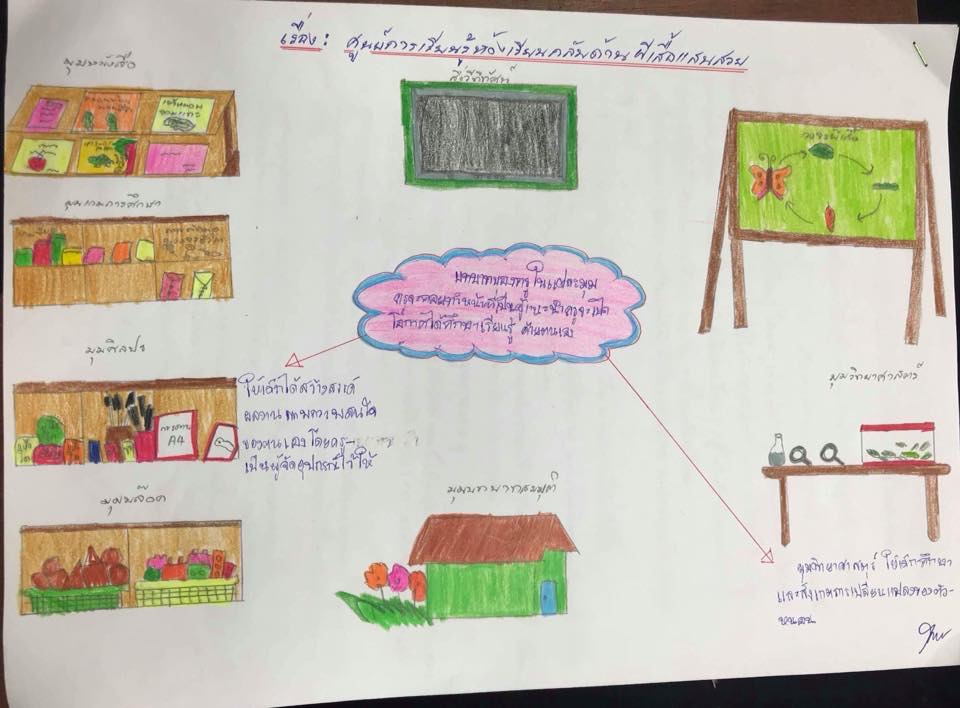 เรื่อง: ศูนย์การเรียนรู้ห้องเรียนกลับด้าน ผีเสื้อแสนสวย
มุมหนังสือ
สื่อวีดิทัศน์
วงจรผีเสื้อ
มุมเกมการศึกษา
บทบาทของครู ในแต่ละมุม
ครูจะคอยทำหน้าที่เป็นผู้แนะนำครูจะเปิด
โอกาสได้ศึกษาเรียนรู้ ด้วยตนเอง
มุมศิลปะ
ให้เด็กได้สร้างสรรค์
ผลงานตามความสนใจ
ของตนเองโดยครู
เป็นผู้จัดอุปกรณ์ไว้ให้
กระดาษ
A4
มุมวิทยาศาสตร์
มุมบล๊อค
มุมบทบาทสมมุติ
มุมวิทยาศาสตร์ ให้เด็กศึกษา
และสังเกตการเปลี่ยนแปลงของตัว-
หนอน